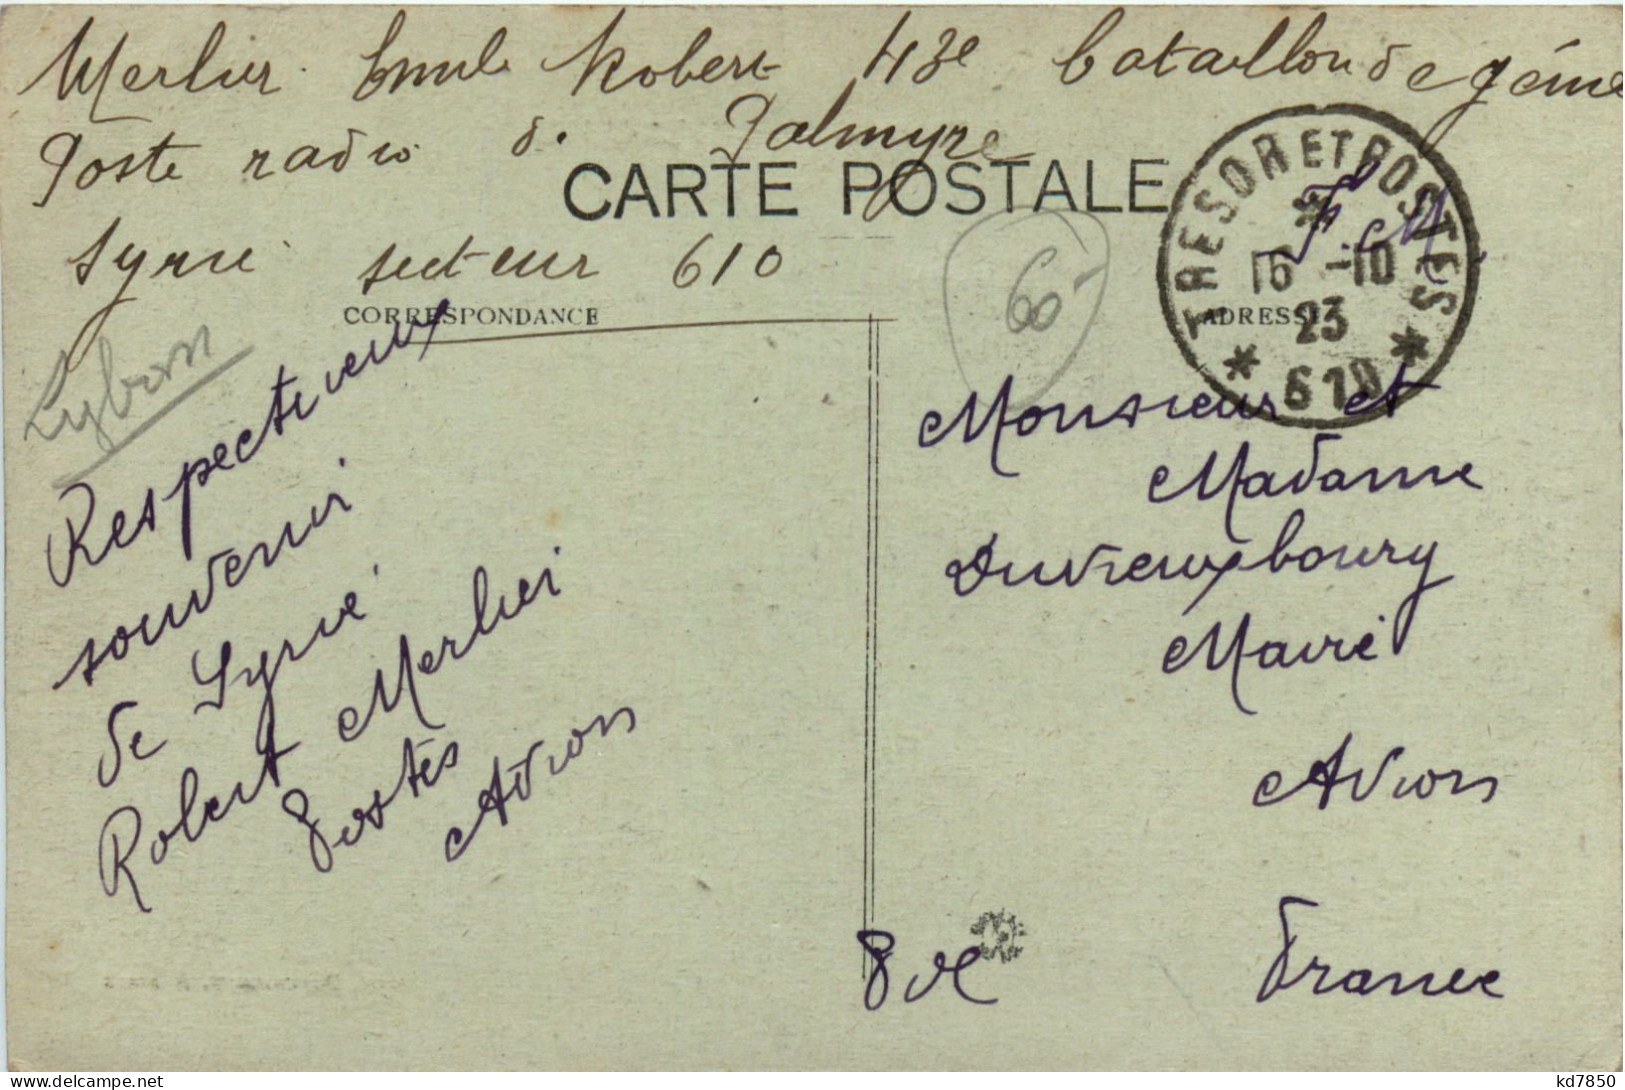 Merlier Emile Robert 43e bataillon de génie
Poste radio de Palmyre
CARTE POSTALE
Syrie secteur 610
TRESOR ET POSTES
16 -10
23
* 610 *
F. M.
6-
CORRESPONDANCE
ADRESSE
Respectueux
souvenir
de Syrie
Robert Merlier
Postes
Avion
Monsieur et
Madame
Mairie
Avion
P de C
France
kd7850